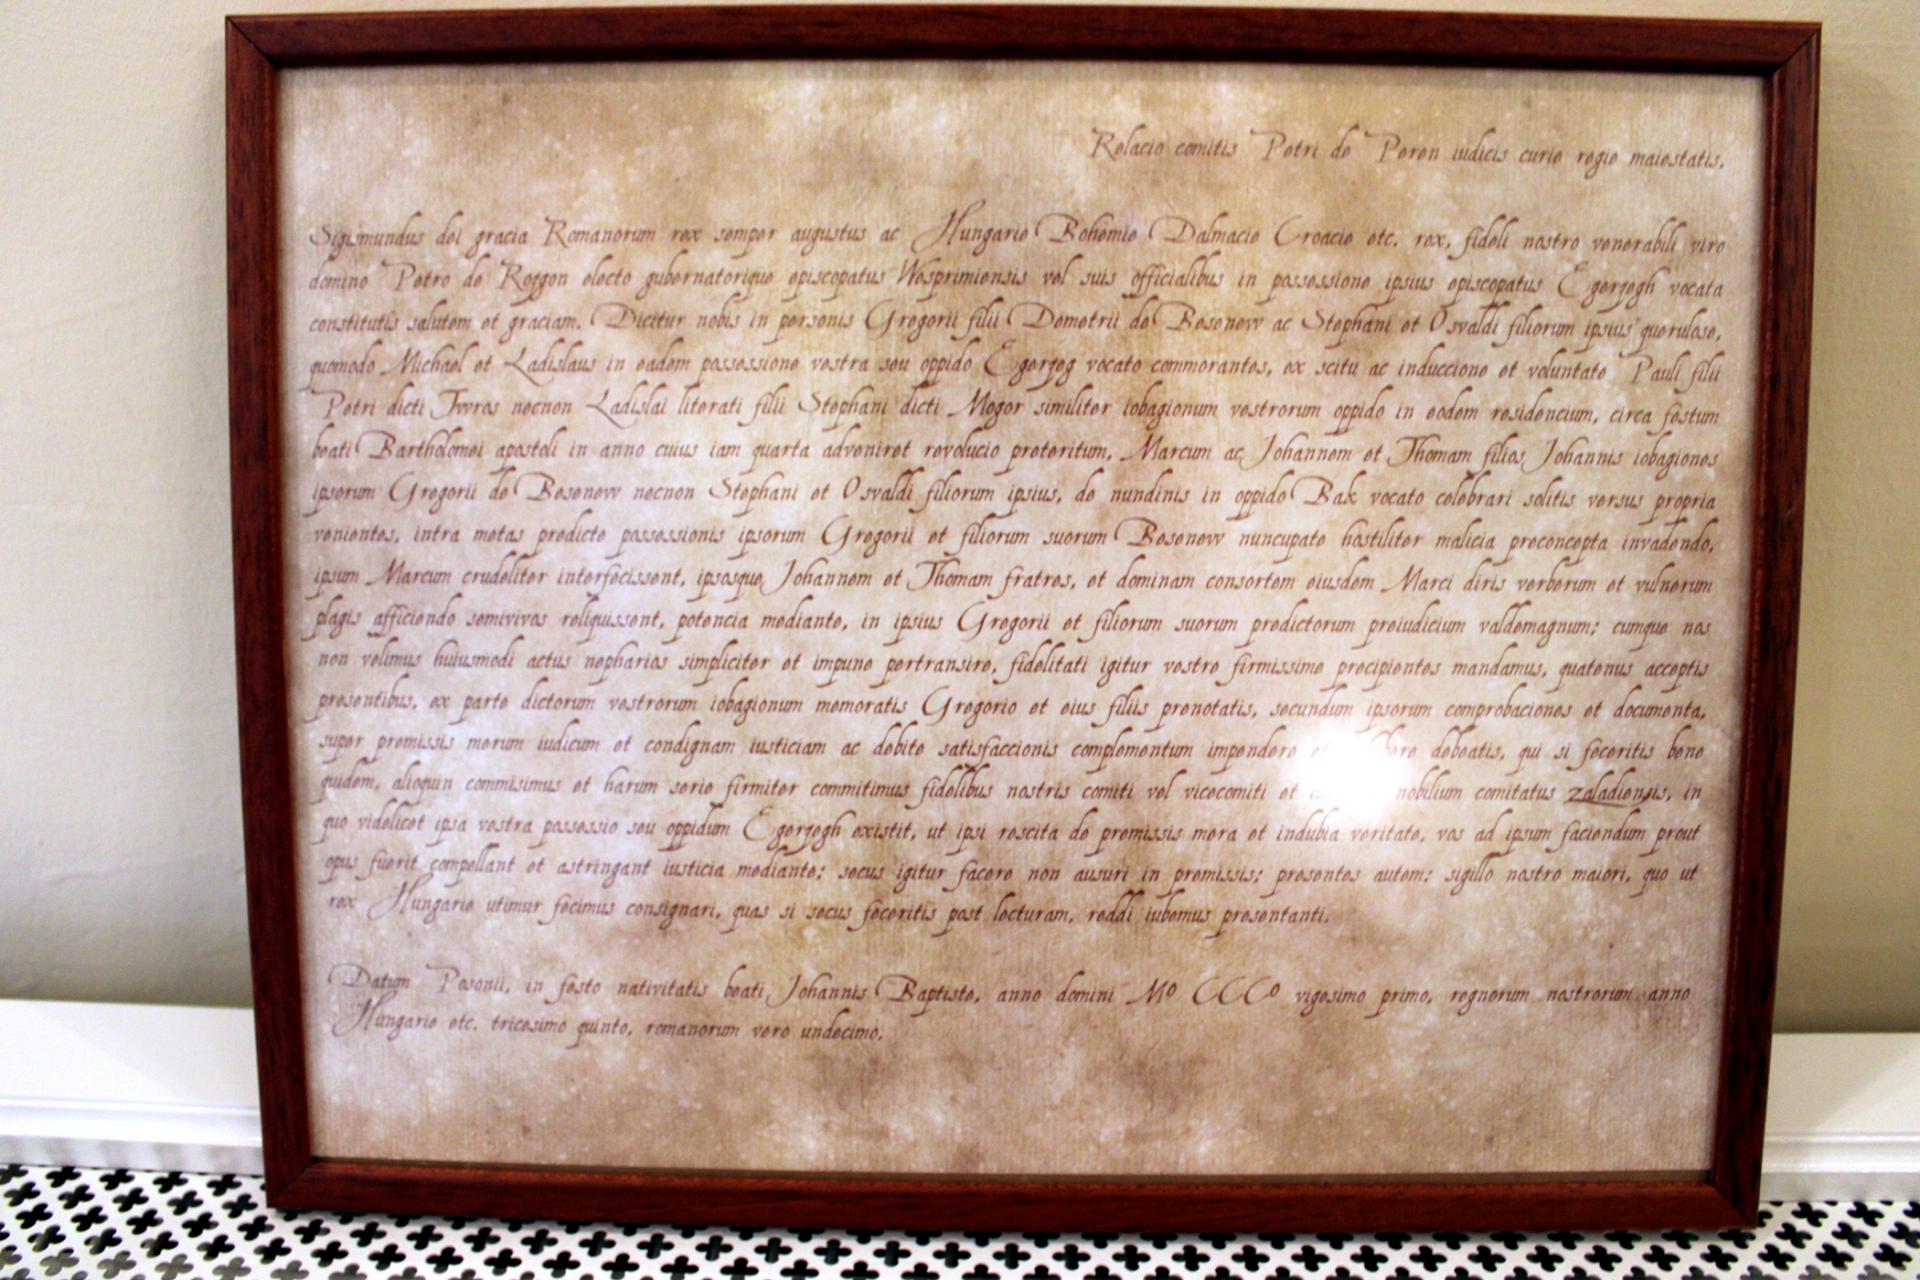 Relacio comitis Petri de Peren iudicis curie regie maiestatis.
Sigismundus dei gracia Romanorum rex semper augustus ac Hungarie Bohemie Dalmacie Croacie etc. rex, fideli nostro venerabili viro
domino Petro de Rozgon electo gubernatorique episcopatus Wesprimiensis vel suis officialibus in possessione ipsius episcopatus Egerzegh vocata
constitutis salutem et graciam. Dicitur nobis in personis Gregorii filii Demetrii de Besenew ac Stephani et Osvaldi filiorum ipsius querulose,
quomodo Michael et Ladislaus in eadem possessione vestra seu oppido Egerzeg vocato commorantes, ex scitu ac induccione et voluntate Pauli filii
Petri dicti Fwres necnon Ladislai literati filii Stephani dicti Mogor similiter iobagionum vestrorum oppido in eodem residencium, circa festum
beati Bartholomei apostoli in anno cuius iam quarta adveniret revolucio preteritum, Marcum ac Johannem et Thomam filios Johannis iobagiones
ipsorum Gregorii de Besenew necnon Stephani et Osvaldi filiorum ipsius, de nundinis in oppido Bak vocato celebrari solitis versus propria
venientes, intra metas predicte possessionis ipsorum Gregorii et filiorum suorum Besenew nuncupate hostiliter malicia preconcepta invadendo,
ipsum Marcum crudeliter interfecissent, ipsosque Johannem et Thomam fratres, et dominam consortem eiusdem Marci diris verberum et vulnerum
plagis afficiendo semivivos reliquissent, potencia mediante, in ipsius Gregorii et filiorum suorum predictorum preiudicium valdemagnum; cumque nos
non velimus huiusmodi actus nepharios simpliciter et impune pertransire, fidelitati igitur vestre firmissime precipientes mandamus, quatenus acceptis
presentibus, ex parte dictorum vestrorum iobagionum memoratis Gregorio et eius filiis prenotatis, secundum ipsorum comprobaciones et documenta,
super premissis merum iudicum et condignam iusticiam ac debite satisfaccionis complementum impendere debeatis, qui si feceritis bene
quidem, alioquin commisimus et harum serie firmiter committimus fidelibus nostris comiti vel vicecomiti et nobilium comitatus zaladiensis, in
quo videlicet ipsa vestra possessio seu oppidum Egerzegh existit, ut ipsi rescita de premissis mera et indubia veritate, vos ad ipsum faciendum prout
opus fuerit compellant et astringant iusticia mediante; secus igitur facere non ausuri in premissis; presentes autem; sigillo nostro maiori, quo ut
rex Hungarie utimur fecimus consignari, quas si secus feceritis post lecturam, reddi iubemus presentanti.
Datum Posonii, in festo nativitatis beati Johannis Baptiste, anno domini Mo CCCCo vigesimo primo, regnorum nostrorum anno
Hungarie etc. tricesimo quinto, romanorum vero undecimo.